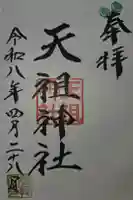 奉拝
天祖神社
令和八年四月二十八日